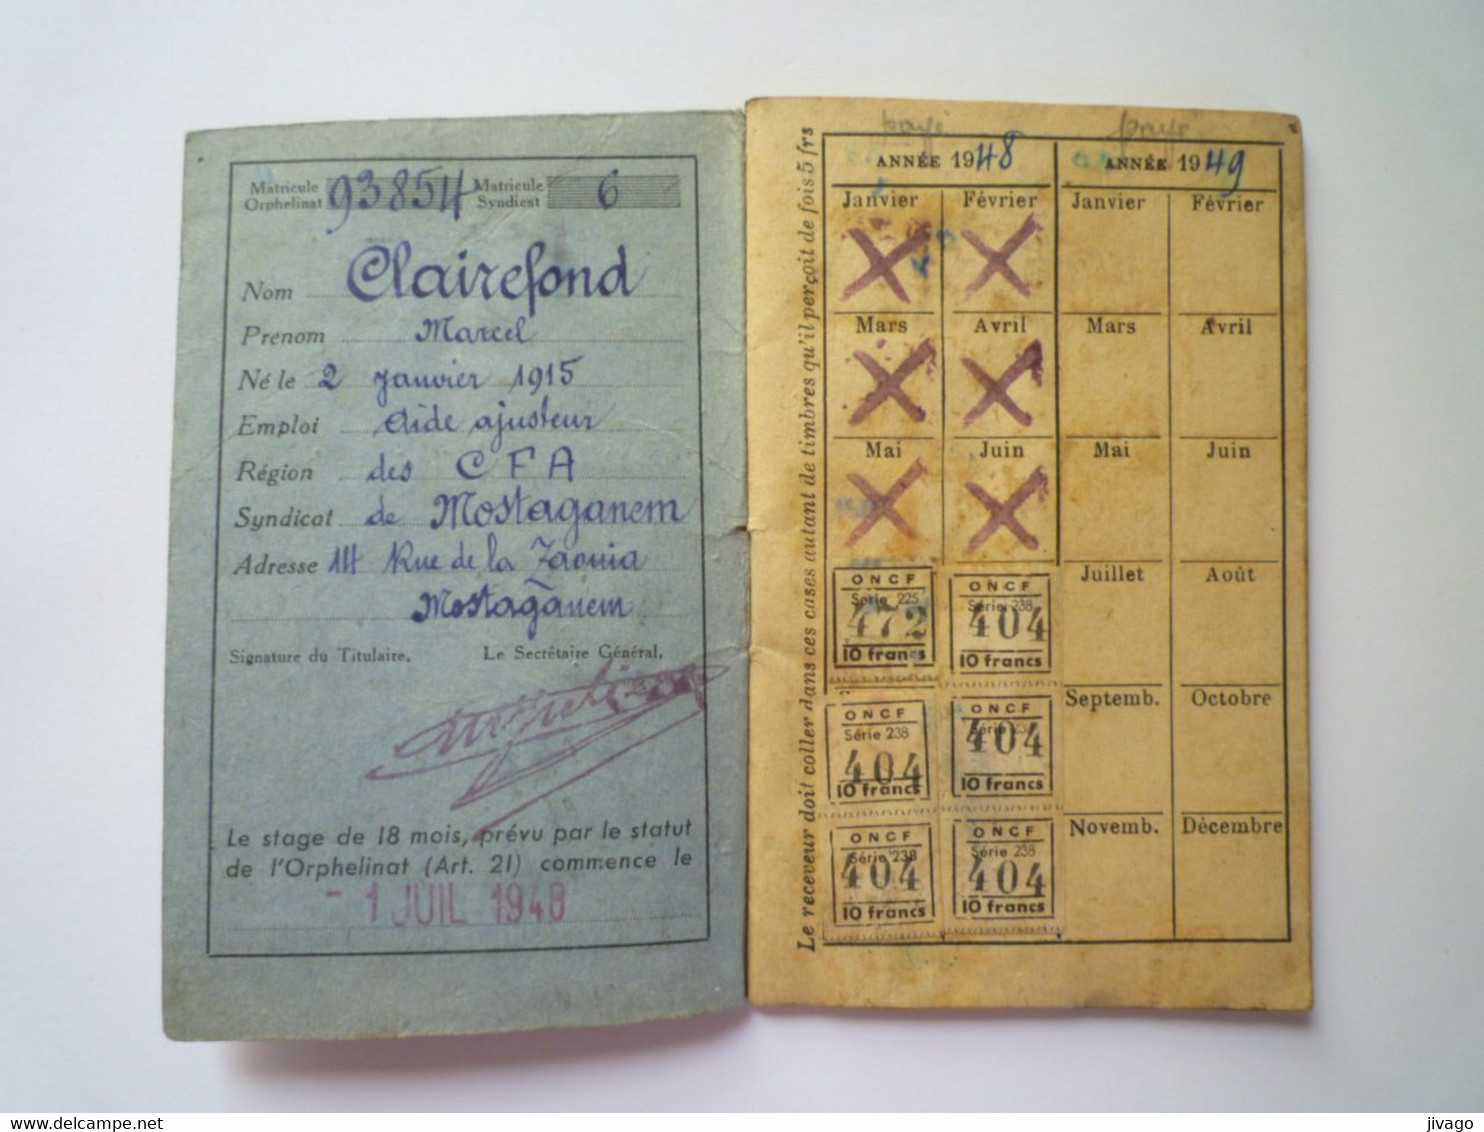 Matricule Orphelinat 93854 Matricule Syndicat 6
Nom Clairefond
Prénom Marcel
Né le 2 janvier 1915
Emploi Aide ajusteur
Région des CFA
Syndicat de Mostaganem
Adresse 14 Rue de la Zaouia
Mostaganem
Signature du Titulaire. Le Secrétaire Général.
Le stage de 18 mois, prévu par le statut
de l'Orphelinat (Art. 21) commence le
- 1 JUIL 1948
Le receveur doit coller dans ces cases autant de timbres qu'il perçoit de fois 5 frs
payé payé
ANNÉE 1948 ANNÉE 1949
Janvier Février Janvier Février
Mars Avril Mars Avril
Mai Juin Mai Juin
Juillet Août
ONCF ONCF
Série 225 Série 238
472 404
10 francs 10 francs
Septemb. Octobre
ONCF ONCF
Série 238 Série 238
404 404
10 francs 10 francs
Novemb. Décembre
ONCF ONCF
Série 238 Série 238
404 404
10 francs 10 francs
delcampe.net
jivago